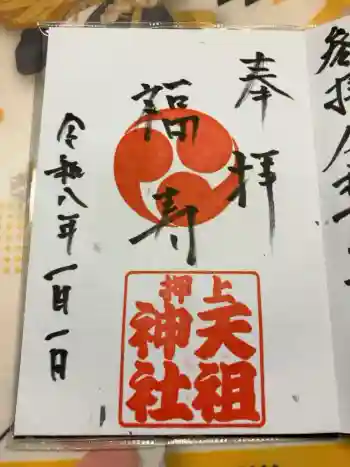 奉拝
福寿
押上
天祖
神社
令和八年一月一日